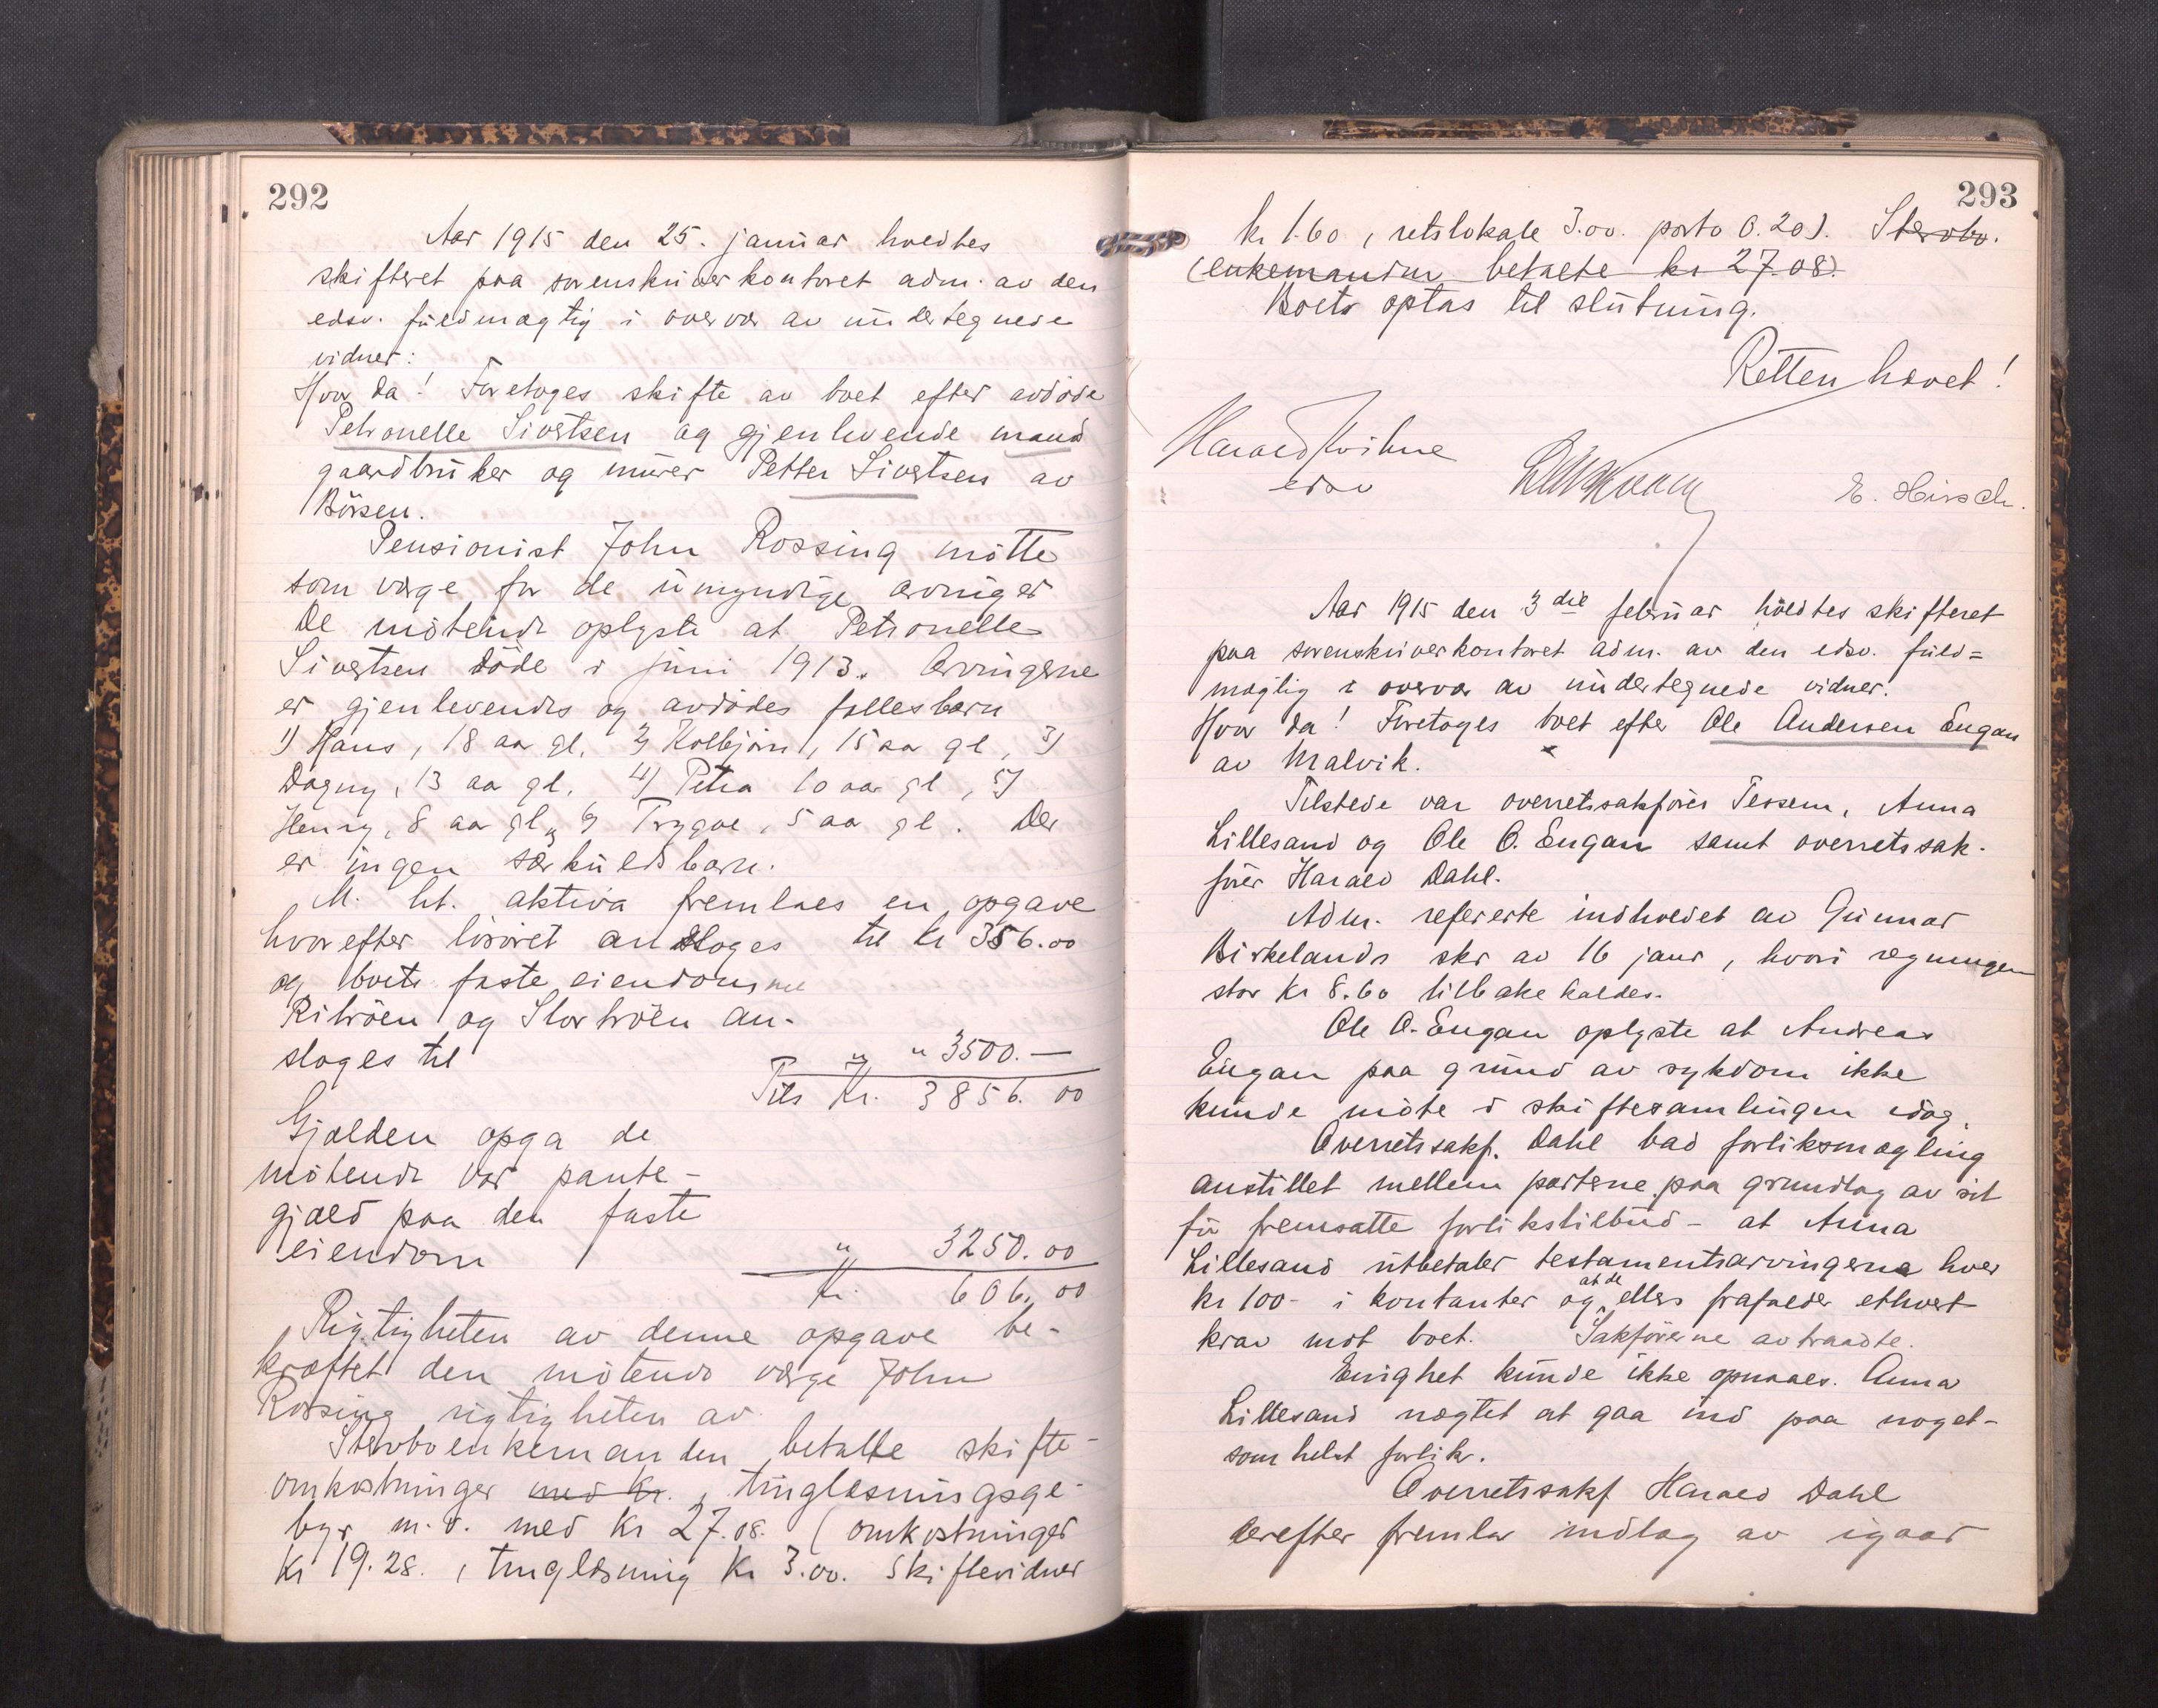 292
Aar 1915 den 25. januar holdtes
skifteret paa sorenskriverkontoret adm. av den
edsv. fuldmægtig i overvær av undertegnede
vidner:
Hvor da! Foretoges skifte av boet efter avdøde
Petronelle Sivertsen og gjenlevende mand
gaardbruker og murer Petter Sivertsen av
Börsen.
Pensionist John Rossing mötte
som værge for de umyndige arvinger
De mötende oplyste at Petronelle
Sivertsen döde i juni 1913. Arvingerne
er gjenlevendes og avdödes fællesbarn
1) Hans, 18 aar gl. 2) Kolbjörn, 15 aar gl, 3)
Dagny, 13 aar gl. 4) Petra 10 aar gl, 5)
Henry, 8 aar gl, 6) Trygve, 5 aar gl. Der
er ingen særkuldsbarn.
M. ht. aktiva fremlaes en opgave
hvorefter lösöret ansloges til kr 356.00
og boets faste eiendomme
Riböen og Stortröen an-
sloges til " " 3500.—
Tils Kr. 3856.00
Gjælden opga de
mötende var pante-
gjæld paa den faste
eiendom " 3250.00
Kr. 606.00
Rigtigheten av denne opgave be-
kræftet den mötende værge John
Rossing rigtigheten av
Stervboenkemanden betalte skifte-
omkostninger med Kr. , tinglæsningsge-
byr m.v. med Kr 27.08. (omkostninger
Kr 19.28. , tinglæsning Kr 3.00. Skiftevidner
293
kr 1.60 , retslokale 3.00. porto 0.20). Stervbo.
(enkemanden betalte kr 27.08).
Boets optas til slutning.
Retten hævet!
Harald Kvihne
edsv
E. Hirsch.
Aar 1915 den 3die februar holdtes skifteret
paa sorenskriverkontoret adm. av den edsv. fuld=
mægtig i overvær av undertegnede vidner.
Hvor da! Foretoges boet efter Ole Andersen Engan
av Malvik.
Tilstede var overretssakförer Tessem, Anna
Lillesand og Ole O. Engan samt overretssak-
förer Harald Dahl.
Adm. refererte indholdet av Gunnar
Birkelands skr av 16 janr , hvori regningen
stor kr 8.60 tilbakekaldes.
Ole O. Engan oplyste at Andreas
Engan paa grund av sykdom ikke
kunde möte i skiftesamlingen idag.
Overretssakf. Dahl bad forliksmægling
anstillet mellem parterne paa grundlag av sit
för fremsatte forlikstilbud - at Anna
Lillesand utbetaler testamentsarvingerne hver
kr 100- i kontanter og at de ellers frafalder ethvert
krav mot boet. Sakförerne avtraadte.
Enighet kunde ikke opnaaes. Anna
Lillesand nægtet at gaa ind paa noget-
somhelst forlik.
Overretssakf Harald Dahl
derefter fremla indlæg av igaar